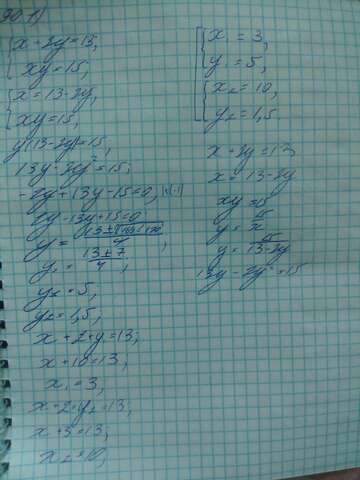 90 1)
{x + 2y = 13,
xy = 15,
{x = 13 - 2y,
xy = 15,
y(13 - 2y) = 15,
13y - 2y² = 15;
-2y² + 13y - 15 = 0, | · (-1)
2y² - 13y + 15 = 0
y = 13 ± √169 - 120 / 4 ;
y₁ = 13 ± 7 / 4 ;
y₁ = 5;
y₂ = 1,5;
x + 2 · y = 13;
x + 10 = 13;
x₁ = 3;
x + 2 · y₂ = 13;
x + 3 = 13;
x₂ = 10;
{x₁ = 3,
y₁ = 5,
{x₂ = 10,
y₂ = 1,5.
x + 2y = 13
x = 13 - 2y
xy = 15
y = 15/x
y = 15/13 - 2y
13y - 2y² = 15